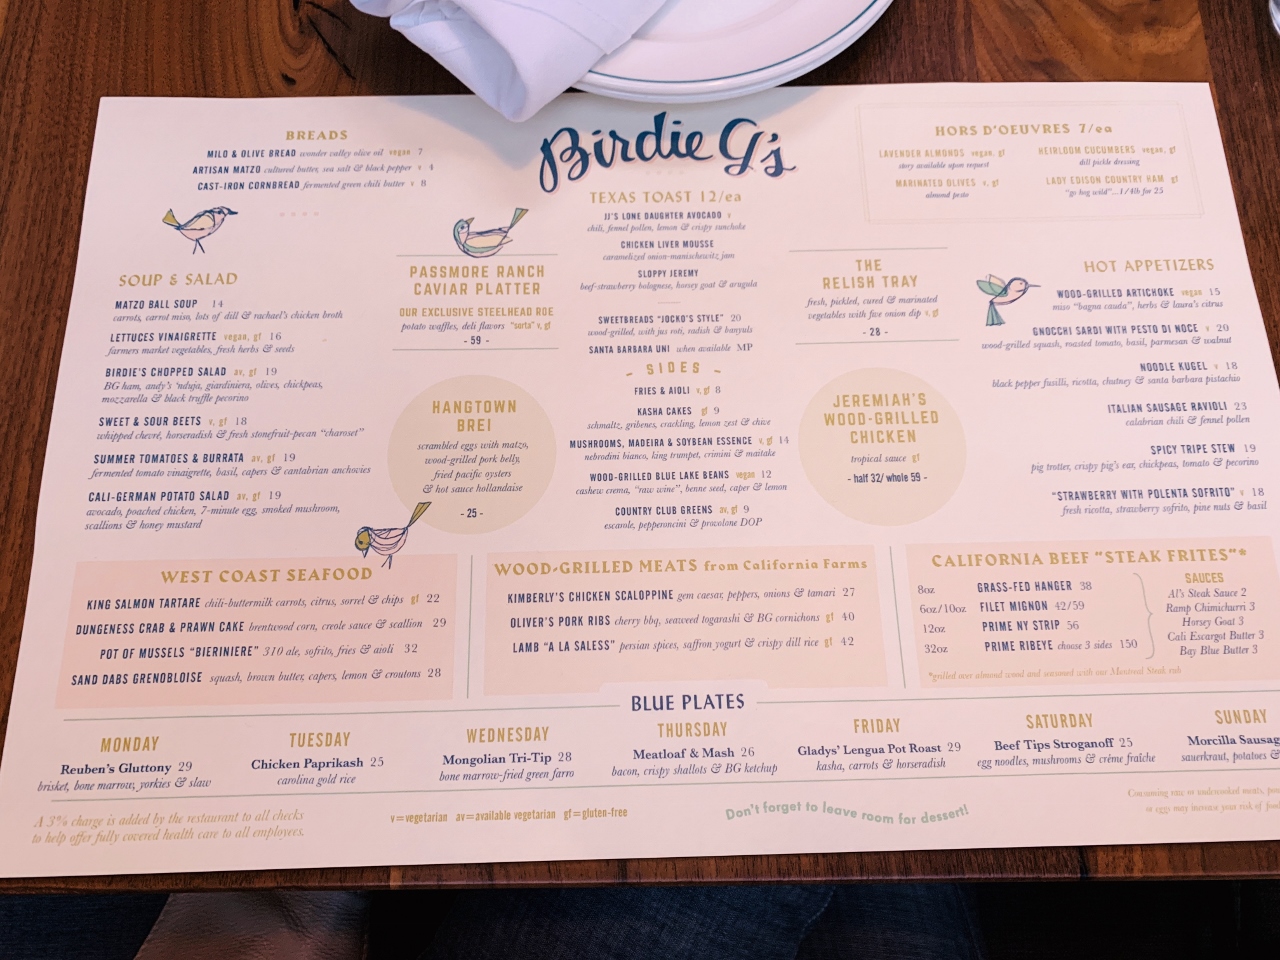 Birdie G's
BREADS
MILO & OLIVE BREAD wonder valley olive oil vegan 7
ARTISAN MATZO cultured butter, sea salt & black pepper v 4
CAST-IRON CORNBREAD fermented green chili butter v 8
HORS D'OEUVRES 7/ea
LAVENDER ALMONDS vegan, gf
story available upon request
MARINATED OLIVES v, gf
almond pesto
HEIRLOOM CUCUMBERS vegan, gf
dill pickle dressing
LADY EDISON COUNTRY HAM gf
"go hog wild"...1/4lb for 25
TEXAS TOAST 12/ea
JJ'S LONE DAUGHTER AVOCADO v
chili, fennel pollen, lemon & crispy sunchoke
CHICKEN LIVER MOUSSE
caramelized onion-manischewitz jam
SLOPPY JEREMY
beef-strawberry bolognese, horsey goat & arugula
SWEETBREADS "JOCKO'S STYLE" 20
wood-grilled, with jus roti, radish & banyuls
SANTA BARBARA UNI when available MP
SOUP & SALAD
MATZO BALL SOUP 14
carrots, carrot miso, lots of dill & rachael's chicken broth
LETTUCES VINAIGRETTE vegan, gf 16
farmers market vegetables, fresh herbs & seeds
BIRDIE'S CHOPPED SALAD av, gf 19
BG ham, andy's 'nduja, giardiniera, olives, chickpeas,
mozzarella & black truffle pecorino
SWEET & SOUR BEETS v, gf 18
whipped chevré, horseradish & fresh stonefruit-pecan "charoset"
SUMMER TOMATOES & BURRATA av, gf 19
fermented tomato vinaigrette, basil, capers & cantabrian anchovies
CALI-GERMAN POTATO SALAD av, gf 19
avocado, poached chicken, 7-minute egg, smoked mushroom,
scallions & honey mustard
PASSMORE RANCH
CAVIAR PLATTER
OUR EXCLUSIVE STEELHEAD ROE
potato waffles, deli flavors "sorta" v, gf
- 59 -
HANGTOWN
BREI
scrambled eggs with matzo,
wood-grilled pork belly,
fried pacific oysters
& hot sauce hollandaise
- 25 -
SIDES
FRIES & AIOLI v, gf 8
KASHA CAKES gf 9
schmaltz, gribenes, crackling, lemon zest & chive
MUSHROOMS, MADEIRA & SOYBEAN ESSENCE v, gf 14
nebrodini bianco, king trumpet, crimini & maitake
WOOD-GRILLED BLUE LAKE BEANS vegan 12
cashew crema, "raw wine", benne seed, caper & lemon
COUNTRY CLUB GREENS av, gf 9
escarole, pepperoncini & provolone DOP
THE
RELISH TRAY
fresh, pickled, cured & marinated
vegetables with five onion dip v, gf
- 28 -
JEREMIAH'S
WOOD-GRILLED
CHICKEN
tropical sauce gf
- half 32/ whole 59 -
HOT APPETIZERS
WOOD-GRILLED ARTICHOKE vegan 15
miso "bagna cauda", herbs & laura's citrus
GNOCCHI SARDI WITH PESTO DI NOCE v 20
wood-grilled squash, roasted tomato, basil, parmesan & walnut
NOODLE KUGEL v 18
black pepper fusilli, ricotta, chutney & santa barbara pistachio
ITALIAN SAUSAGE RAVIOLI 23
calabrian chili & fennel pollen
SPICY TRIPE STEW 19
pig trotter, crispy pig's ear, chickpeas, tomato & pecorino
"STRAWBERRY WITH POLENTA SOFRITO" v 18
fresh ricotta, strawberry sofrito, pine nuts & basil
WEST COAST SEAFOOD
KING SALMON TARTARE chili-buttermilk carrots, citrus, sorrel & chips gf 22
DUNGENESS CRAB & PRAWN CAKE brentwood corn, creole sauce & scallion 29
POT OF MUSSELS "BIERINIERE" 310 ale, sofrito, fries & aioli 32
SAND DABS GRENOBLOISE squash, brown butter, capers, lemon & croutons 28
WOOD-GRILLED MEATS from California Farms
KIMBERLY'S CHICKEN SCALOPPINE gem caesar, peppers, onions & tamari 27
OLIVER'S PORK RIBS cherry bbq, seaweed togarashi & BG cornichons gf 40
LAMB "A LA SALESS" persian spices, saffron yogurt & crispy dill rice gf 42
CALIFORNIA BEEF "STEAK FRITES"*
8oz GRASS-FED HANGER 38
6oz/10oz FILET MIGNON 42/59
12oz PRIME NY STRIP 56
32oz PRIME RIBEYE choose 3 sides 150
SAUCES
Al's Steak Sauce 2
Ramp Chimichurri 3
Horsey Goat 3
Cali Escargot Butter 3
Bay Blue Butter 3
*grilled over almond wood and seasoned with our Montreal Steak rub
BLUE PLATES
MONDAY
Reuben's Gluttony 29
brisket, bone marrow, yorkies & slaw
TUESDAY
Chicken Paprikash 25
carolina gold rice
WEDNESDAY
Mongolian Tri-Tip 28
bone marrow-fried green farro
THURSDAY
Meatloaf & Mash 26
bacon, crispy shallots & BG ketchup
FRIDAY
Gladys' Lengua Pot Roast 29
kasha, carrots & horseradish
SATURDAY
Beef Tips Stroganoff 25
egg noodles, mushrooms & crème fraîche
SUNDAY
Morcilla Sausag
sauerkraut, potatoes &
A 3% charge is added by the restaurant to all checks
to help offer fully covered health care to all employees.
v=vegetarian av=available vegetarian gf=gluten-free
Don't forget to leave room for dessert!
Consuming raw or undercooked meats,
or eggs may increase your risk of